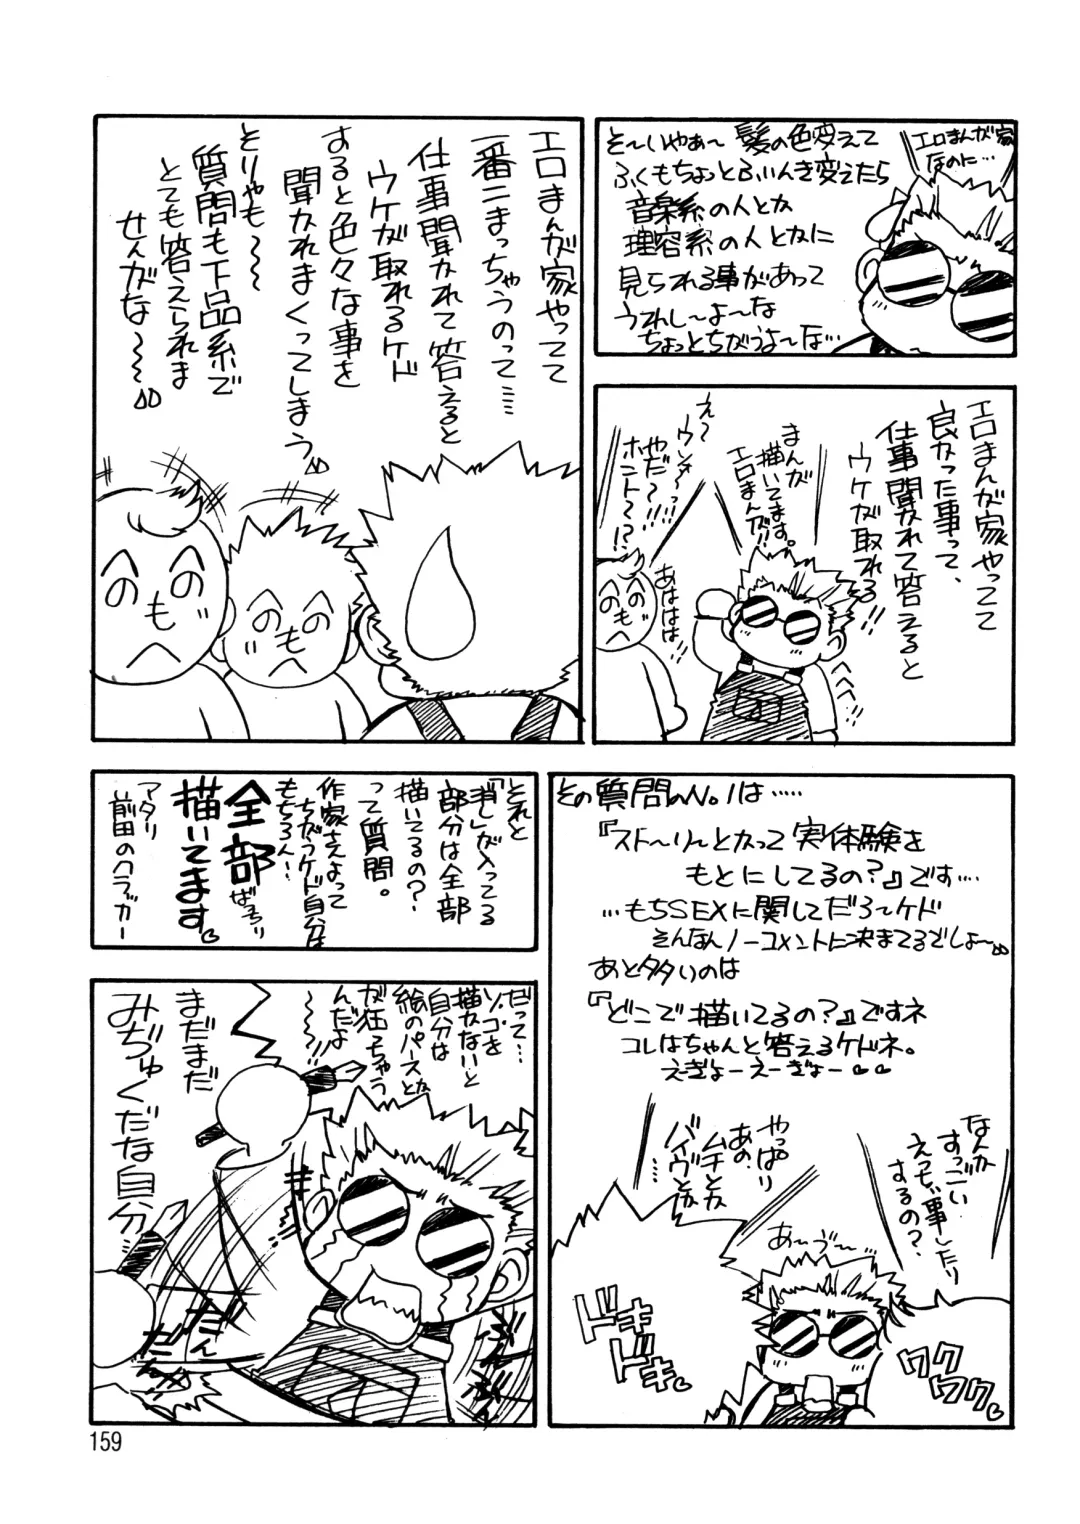 エロまんが家
なのに…
そ〜いやぁ〜髪の色変えて
ふくもちょっとふいんき変えたら
音楽系の人とか
理容系の人とかに
見られる事があって
うれし〜よ〜な
ちょっとちがうよ〜な…
エロまんが家やってて
良かった事って、
仕事聞かれて答えると
ウケが取れる!!
まんが
描いてます。
エロまんが!!
え〜
ウッソ〜っ!
やだ〜?
ホント〜!?
あははは
エロまんが家やってて
一番こまっちゃうのって……
仕事聞かれて答えると
ウケが取れるケド
すると色々な事を
聞かれまくってしまう
とりゃも〜〜
質問も下品系で
とても答えられま
せんがな〜〜
へのへのもへ
へのへのもへ
その質問のNo.1は……
『スト〜リ〜とかって実体験を
もとにしてるの?』です……
…もちSEXに関してだろ〜ケド
そんなんノーコメントに決まてるでしょ〜
あと多いのは
『どこで描いてるの?』ですネ
コレはちゃんと答えるケドネ。
えぎょーえーぎょー
なんか
すっごい
えっち事したり
するの?
やっぱり
あの、
ムチとか
バイヴとか
…
あ〜う〜
ドキ
ドキ
ワク
ワク
それと
「消し」が入ってる
部分は全部
描いてるの?
って質問。
作家さんよって
ちがうケド自分は
もちろん!
全部ばっちり
描いてます。
アタリ
前田のクラッカー
だって…
ソコを
描かないと
自分は
絵のパースとか
が狂っちゃう
んだよ
〜〜!!
まだまだ
みぢゅくだな自分
だん
だん
ぶん
ぶん
159